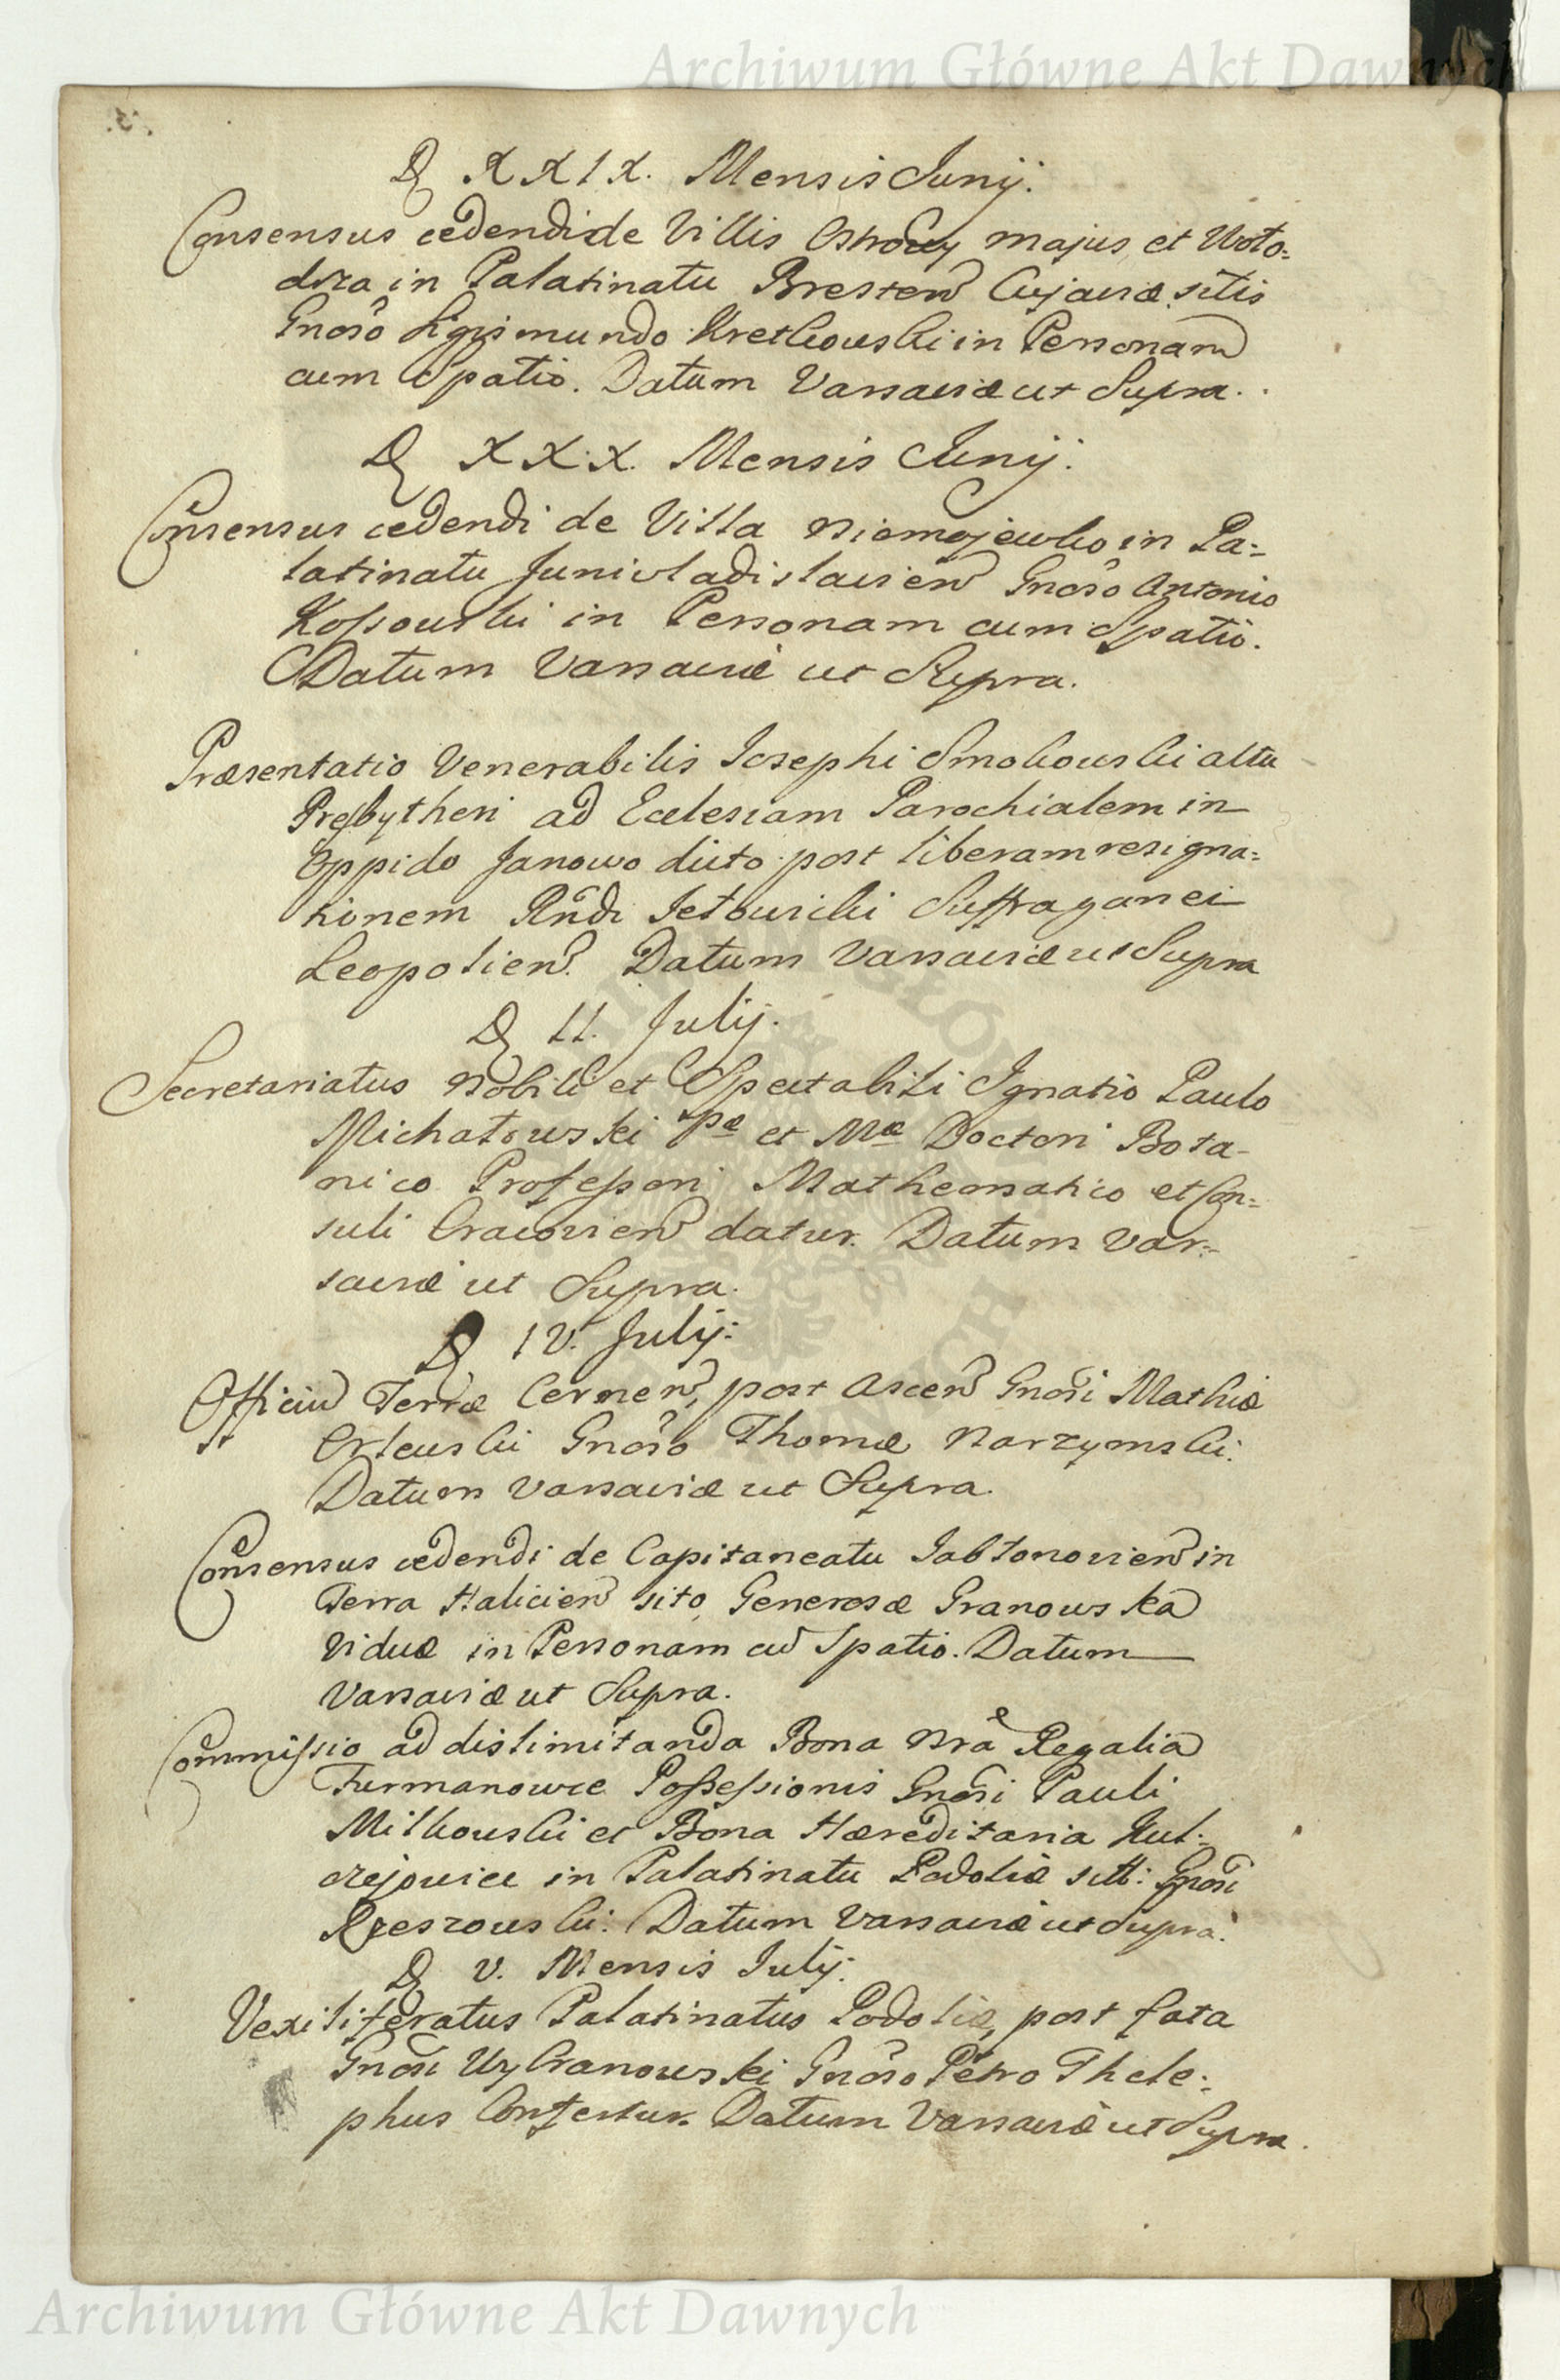 Archiwum Główne Akt Dawnych
D XXIX. Mensis Junij.
Consensus cedendi de Villis Ostrowy majus et Woło=
dza in Palatinatu Bresten Cujaviæ sitis
Gnoso Sigismundo Kretkowski in Personam
cum Spatio. Datum Varsaviæ ut Supra.
D XXX. Mensis Junij.
Consensus cedendi de Villa Niemojewko in Pa=
latinatu Junivladislavien Gnoso Antonio
Kossowski in Personam cum Spatio.
Datum Varsaviæ ut Supra.
Præsentatio Venerabilis Josephi Smokowski altu
Presbytheri ad Ecclesiam Parochialem in
Oppido Janowo dicto post liberam resigna=
tionem Rndi Jełowicki Suffraganei
Leopolien. Datum Varsaviæ ut Supra
D II. Julij.
Secretariatus Nobili et Spectabili Ignatio Paulo
Michałowski Ppæ et Mæ Doctori Bota-
nico Professori Mathematico et Con=
suli Cracovien datur. Datum Var=
saviæ ut Supra.
D IV. Julij:
Officiu Terræ Cernen, post Ascen Gnosi Mathiæ
Orłowski Gnoso Thomæ Narzymski.
Datum Varsaviæ ut Supra.
Consensus cedendi de Capitaneatu Jabłonovien in
Terra Halicien sito Generosæ Granowska
Viduæ in Personam cu Spatio. Datum
Varsaviæ ut Supra.
Commissio ad dislimitanda Bona Nra Regalia
Furmanowce Possessionis Gnosi Pauli
Miłkowski et Bona Hæreditaria Kul=
czejowice in Palatinatu Podoliæ sitt: Gnosi
Rzeszowski. Datum Varsaviæ ut Supra.
D V. Mensis Julij.
Vexiliferatus Palatinatus Podoliæ, post fata
Gnosi Wykranowski Gnoso Petro Thele=
phus Confertur. Datum Varsaviæ ut Supra.
Archiwum Główne Akt Dawnych